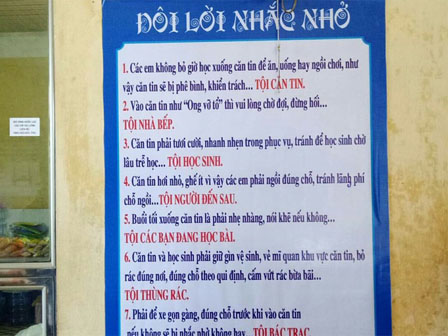 ĐÔI LỜI NHẮC NHỞ
1. Các em không bỏ giờ học xuống căn tin để ăn, uống hay ngồi chơi, như
vậy căn tin sẽ bị phê bình, khiển trách... TỘI CĂN TIN.
2. Vào căn tin như “Ong vỡ tổ” thì vui lòng chờ đợi, đừng hối...
TỘI NHÀ BẾP.
3. Căn tin phải tươi cười, nhanh nhẹn trong phục vụ, tránh để học sinh chờ
lâu trễ học... TỘI HỌC SINH.
4. Căn tin hơi nhỏ, ghế ít vì vậy các em phải ngồi đúng chỗ, tránh lãng phí
chỗ ngồi...TỘI NGƯỜI ĐẾN SAU.
5. Buổi tối xuống căn tin là phải nhẹ nhàng, nói khẽ nếu không...
TỘI CÁC BẠN ĐANG HỌC BÀI.
6. Căn tin và học sinh phải giữ gìn vệ sinh, vẻ mĩ quan khu vực căn tin, bỏ
rác đúng nơi, đúng chỗ theo qui định, cấm vứt rác bừa bãi...
TỘI THÙNG RÁC.
7. Phải để xe gọn gàng, đúng chỗ trước khi vào căn tin
nếu không sẽ bị nhắc nhở không hay... TỘI BÁC TRẠC